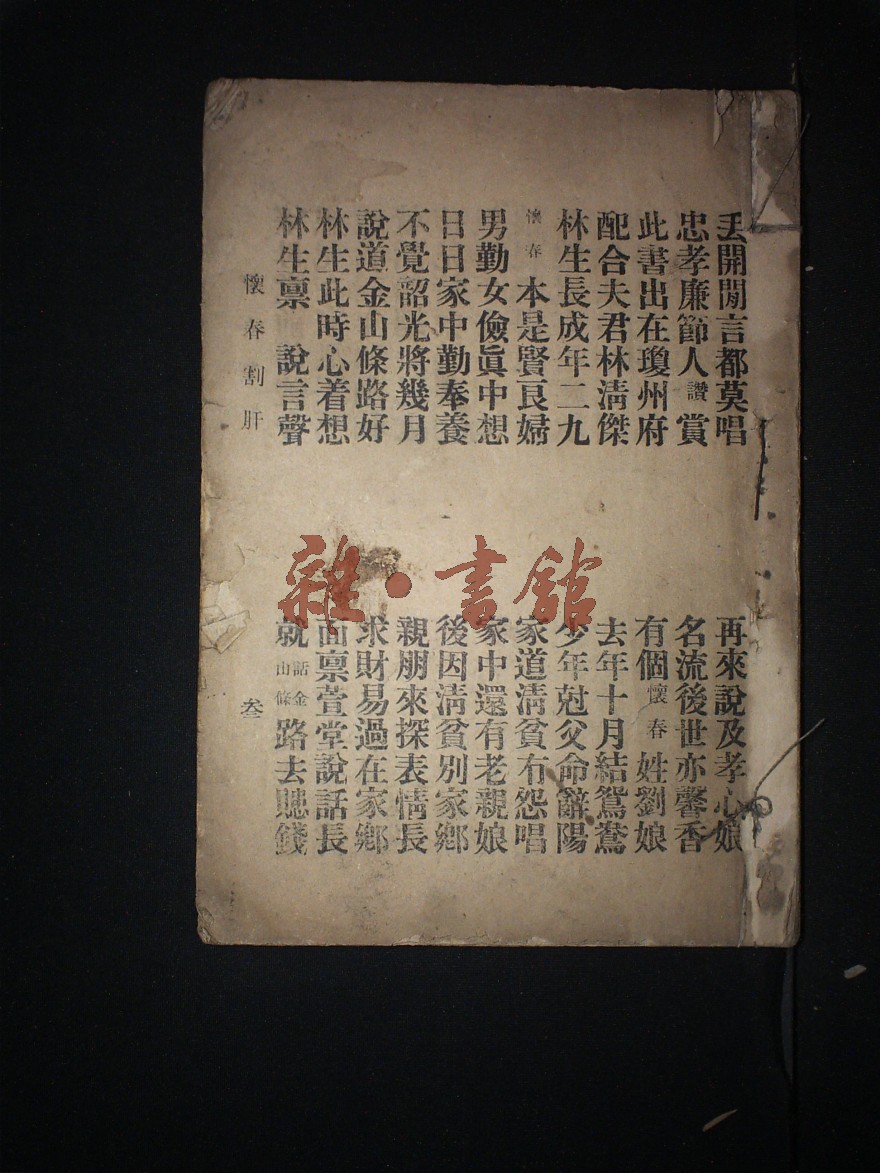 丟開閒言都莫唱 再來說及孝心娘
忠孝廉節人讚賞 名流後世亦馨香
此書出在瓊州府 有個懷春姓劉娘
配合夫君林淸傑 去年十月結鴛鴦
林生長成年二九 少年尅父命辭陽
懷春本是賢良婦 家道淸貧冇怨唱
男勤女儉眞中想 家中還有老親娘
日日家中勤奉養 後因淸貧別家鄉
不覺韶光將幾月 親朋來探表情長
說道金山條路好 求財易過在家鄉
林生此時心着想 面禀萱堂說話長
林生禀 說言聲 就話金山條路去錢
懷春割肝 叁
雜·書館